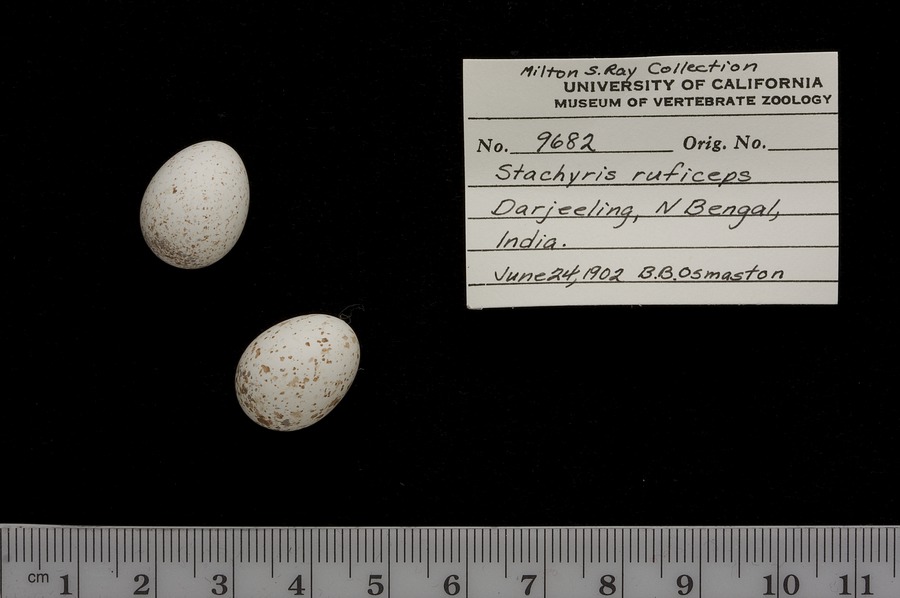 Milton S. Ray Collection
UNIVERSITY OF CALIFORNIA
MUSEUM OF VERTEBRATE ZOOLOGY
No. 9682 Orig. No.
Stachyris ruficeps
Darjeeling, N Bengal,
India.
June 24, 1902 B.B.Osmaston
cm 1 2 3 4 5 6 7 8 9 10 11